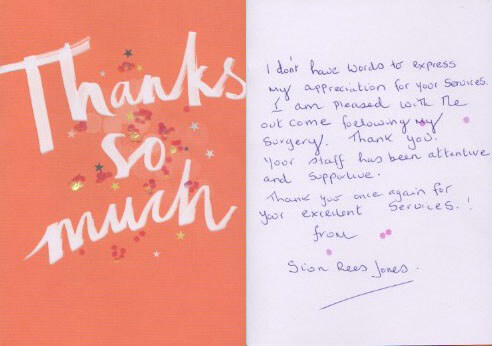 Thanks
so
much
I don't have words to express
my appreciation for your services.
I am pleased with the
out come following my
surgery. Thank you.
Your staff has been attentive
and supportive.
Thank you once again for
your excellent services.!
from
Sion Rees Jones.